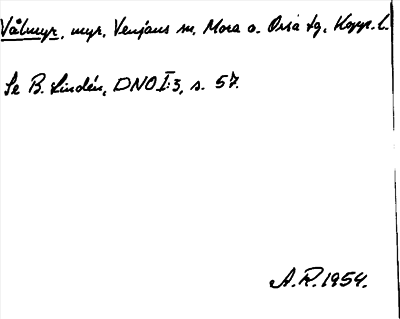 Vålmyr, myr, Venjans sn, Mora o. Orsa tg, Kopp. l.
Se B. Lindén, DNO I:3, s. 57.
A.R. 1954.